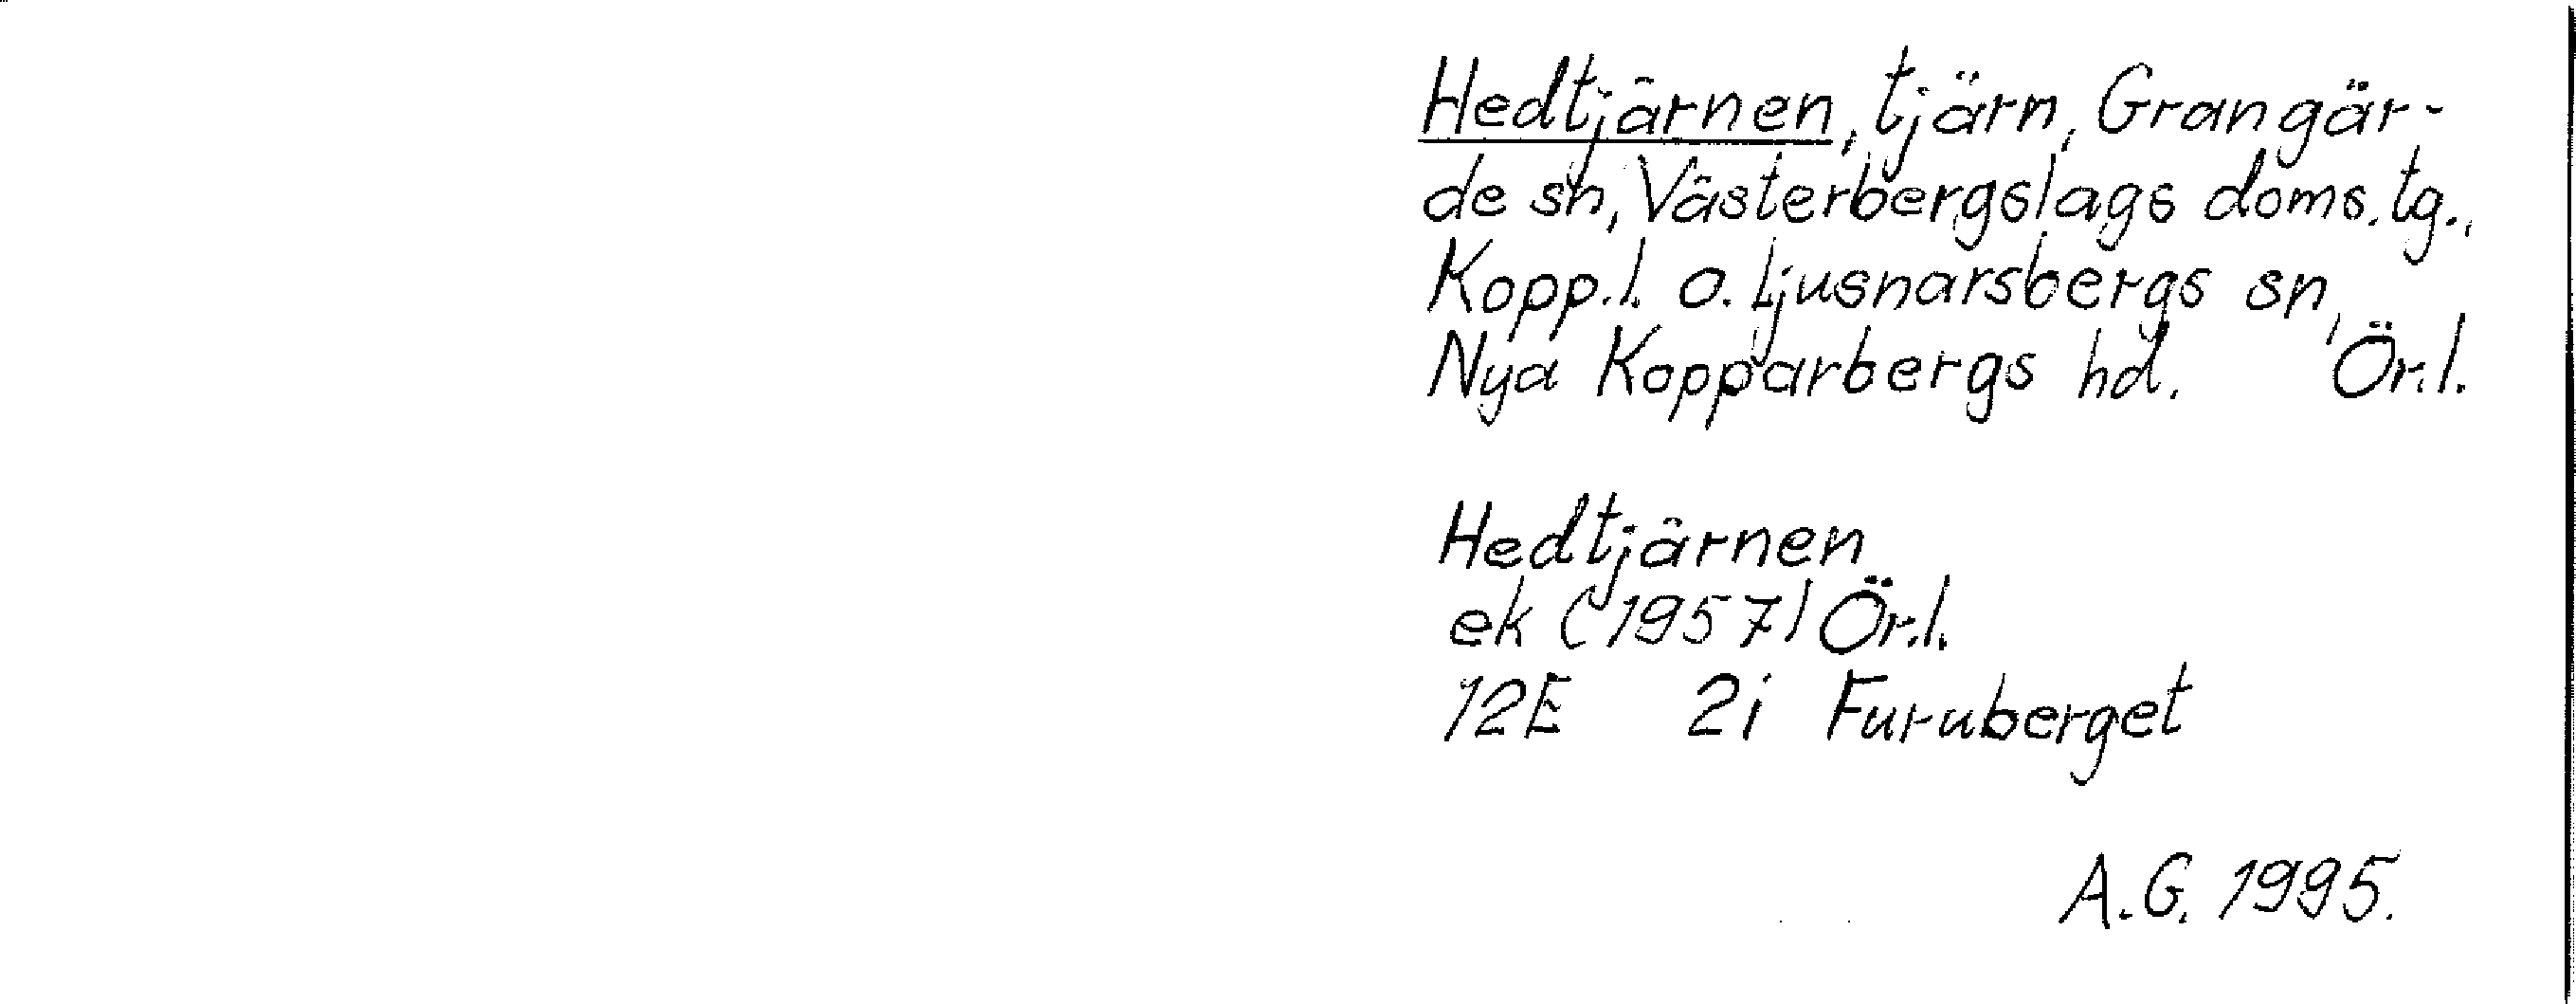 Hedtjärnen, tjärn, Grangär-
de sn, Västerbergslags doms. tg.,
Kopp.l. o. Ljusnarsbergs sn,
Nya Kopparbergs hd. Ör.l.
Hedtjärnen
ek (1957) Ör.l.
12E 2i Furuberget
A.G. 1995.